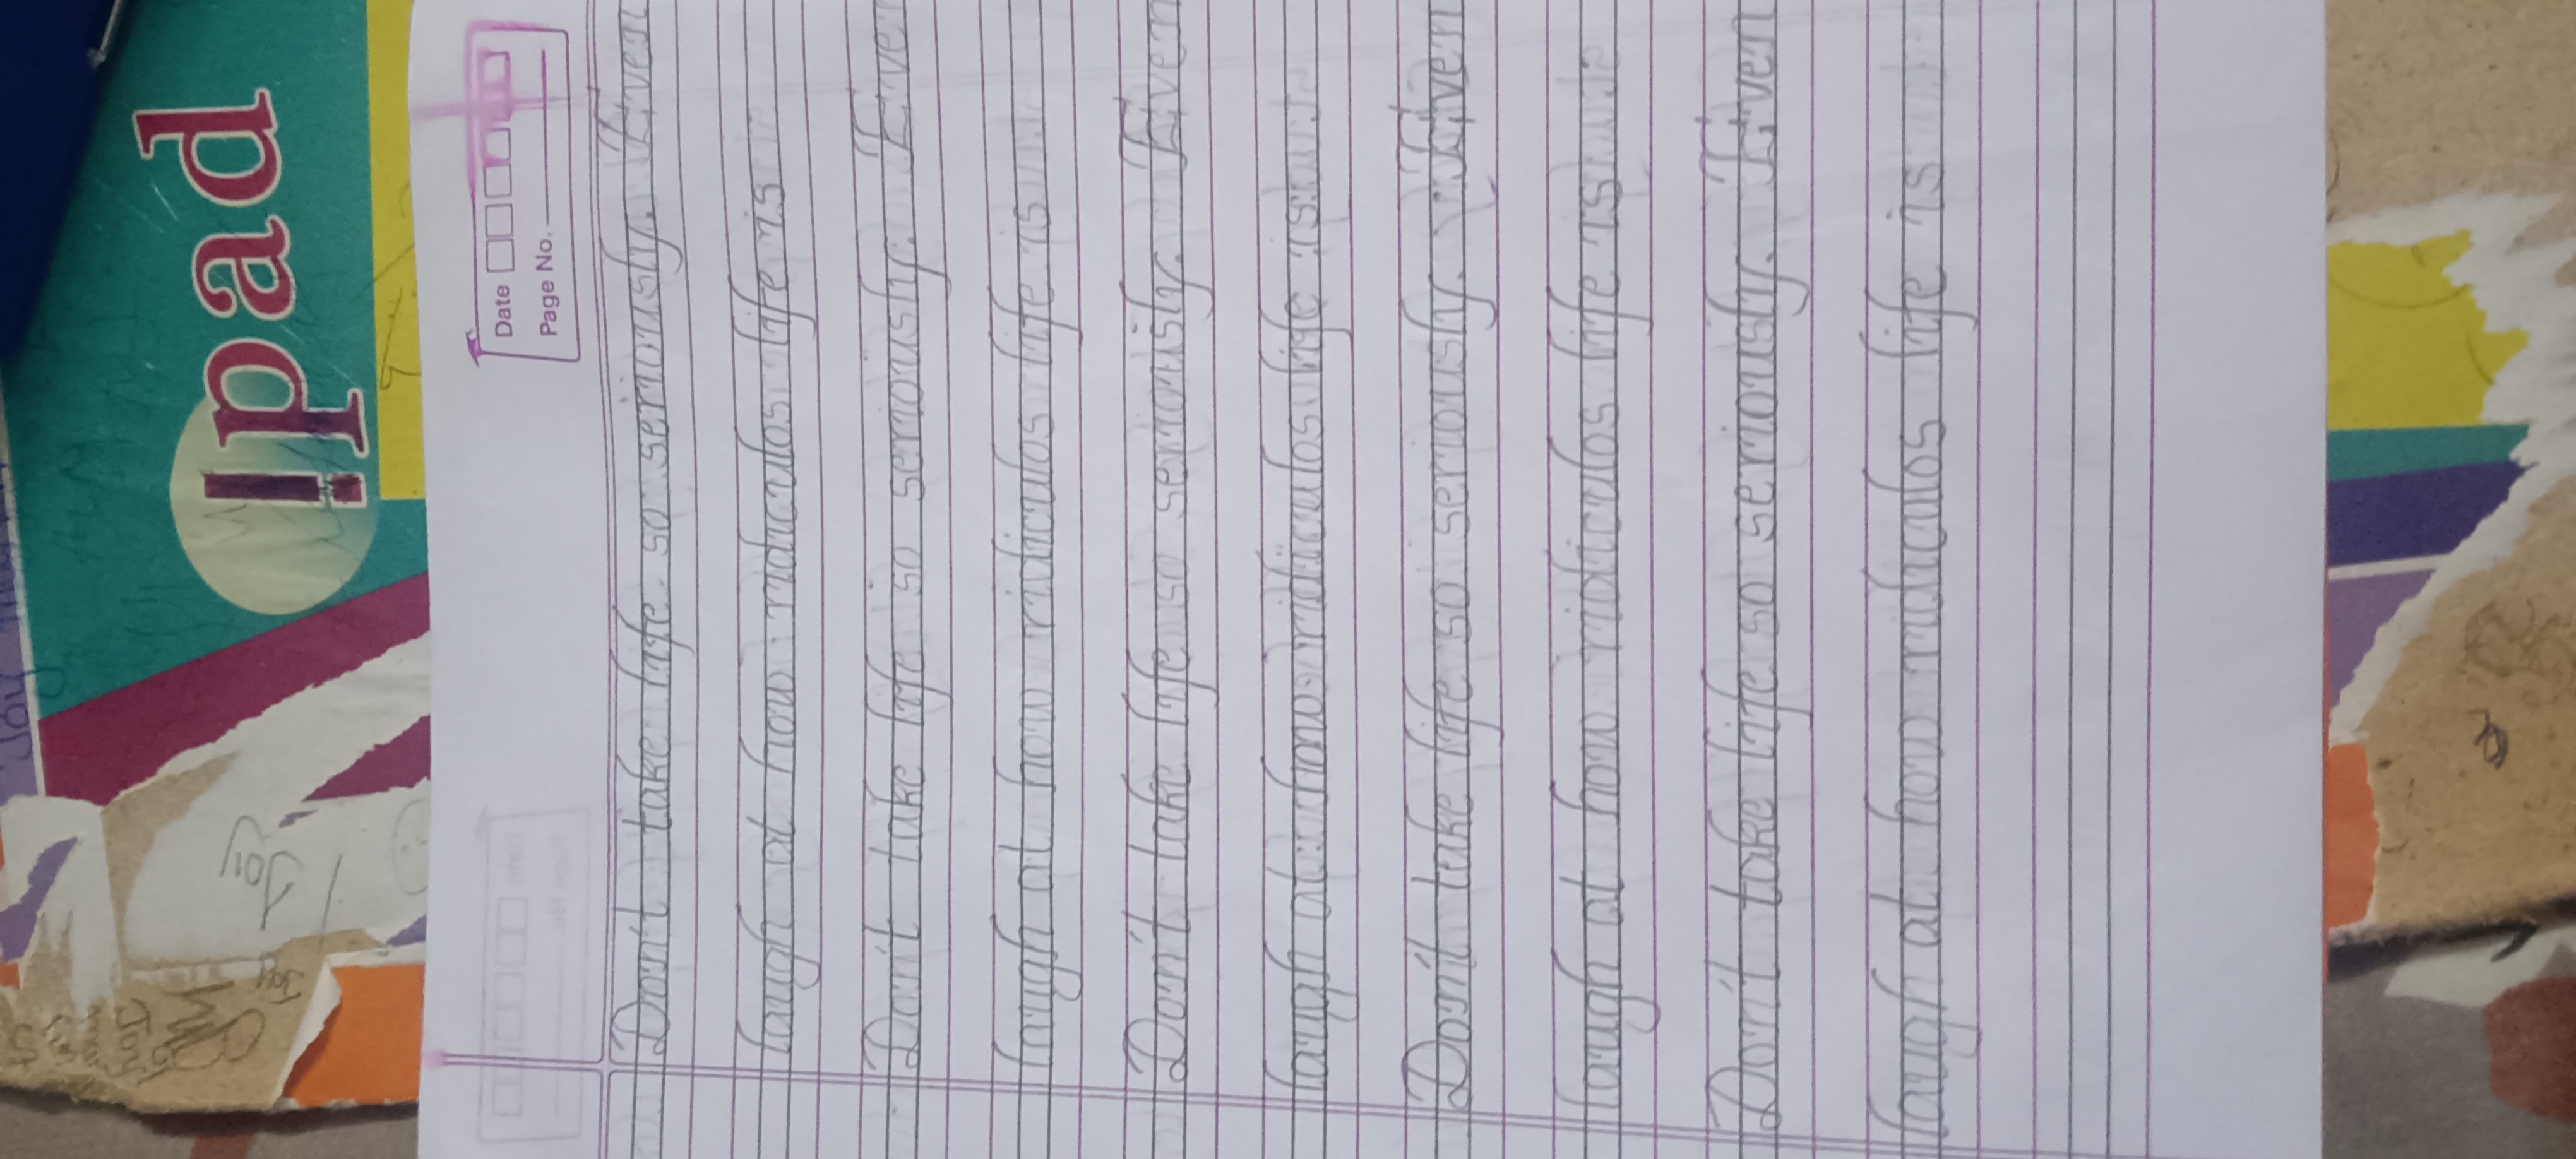 ipad
Date
Page No.
Don't take life so seriously. Even
laugh at how ridiculos life is
Don't take life so seriously. Even
laugh at how ridiculos life is
Don't take life so seriously. Even
laugh at how ridiculos life is
Don't take life so seriously. Even
laugh at how ridiculos life is
Don't take life so seriously. Even
laugh at how ridiculos life is
Joy